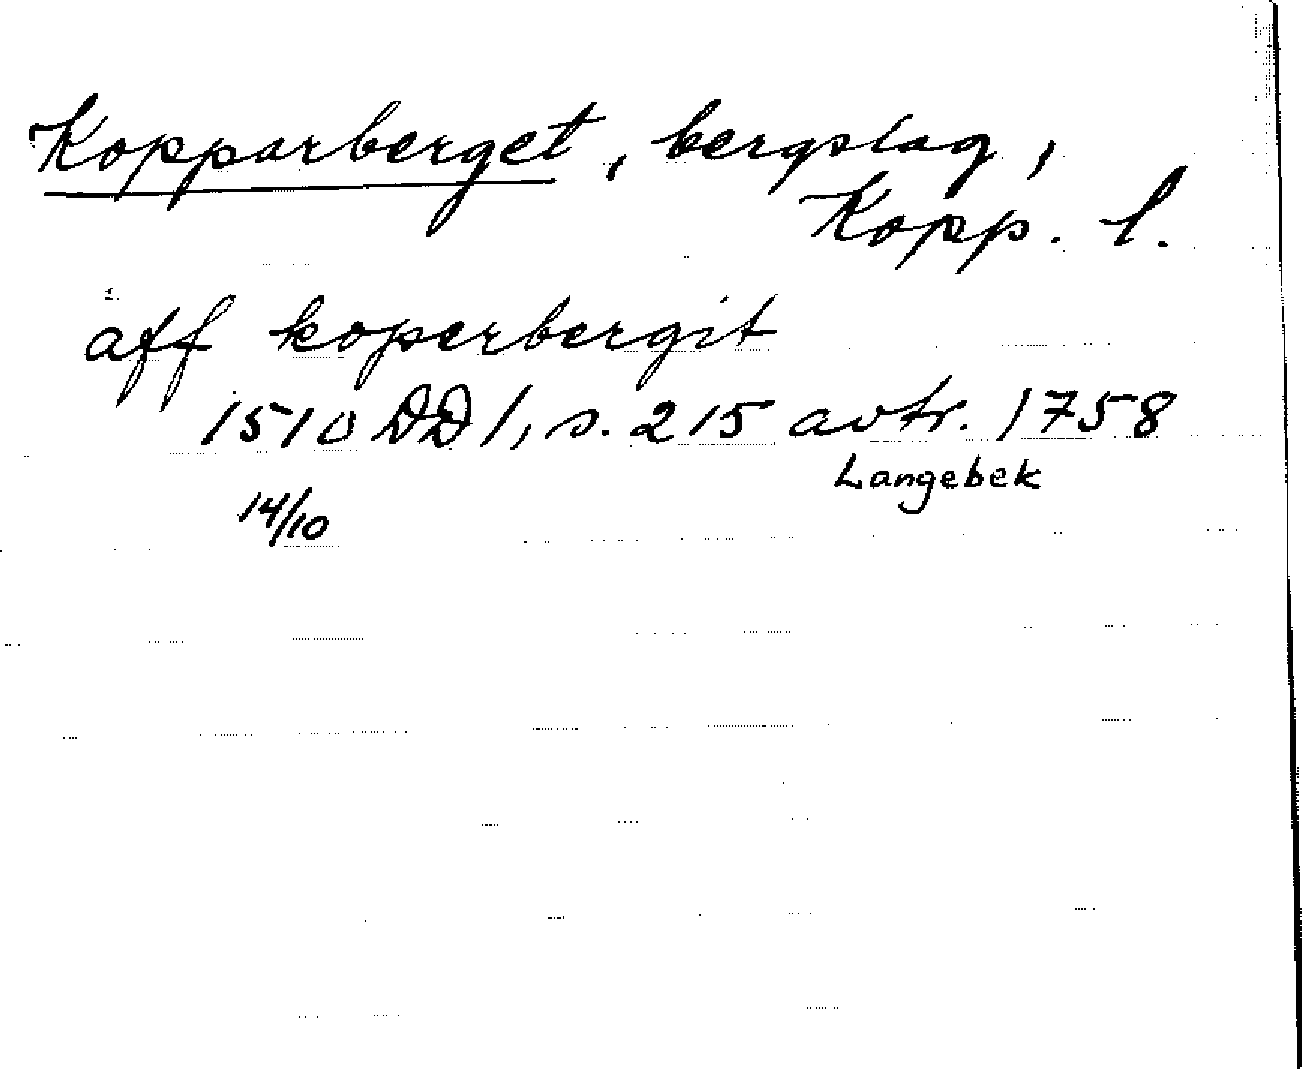 Kopparberget, bergslag,
Kopp. l.
aff koperbergit
1510 DD 1, s. 215 avtr. 1758
Langebek
14/10